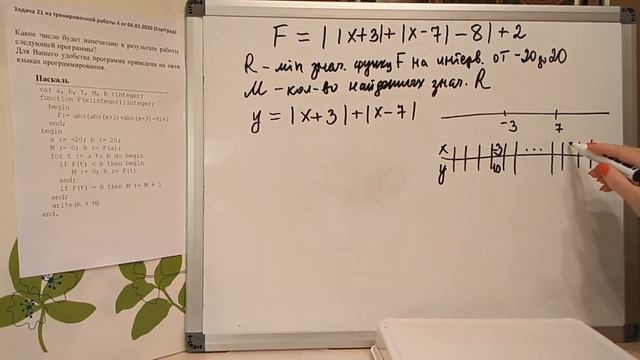 Задача 21 из тренировочной работы 4 от 04.03.2020 (СтатГрад)
Какое число будет напечатано в результате работы
следующей программы?
Для Вашего удобства программа приведена на пяти
языках программирования.
Паскаль
var a, b, t, M, R :integer;
function F(x:integer):integer;
begin
F:= abs(abs(x+3)+abs(x-7)-8)+2
end;
begin
a := -20; b := 20;
M := 0; R := F(a);
for t := a to b do begin
if F(t) < R then begin
M := 0; R := F(t)
end;
if F(t) = R then M := M + 1
end;
write(R + M)
end.
F = | |x+3|+|x-7| -8|+2
R - min знач. функц F на интерв. от -20 до 20
M - кол-во найденных знач. R
y = |x+3|+|x-7|
-3 7
x -3 ...
y 10